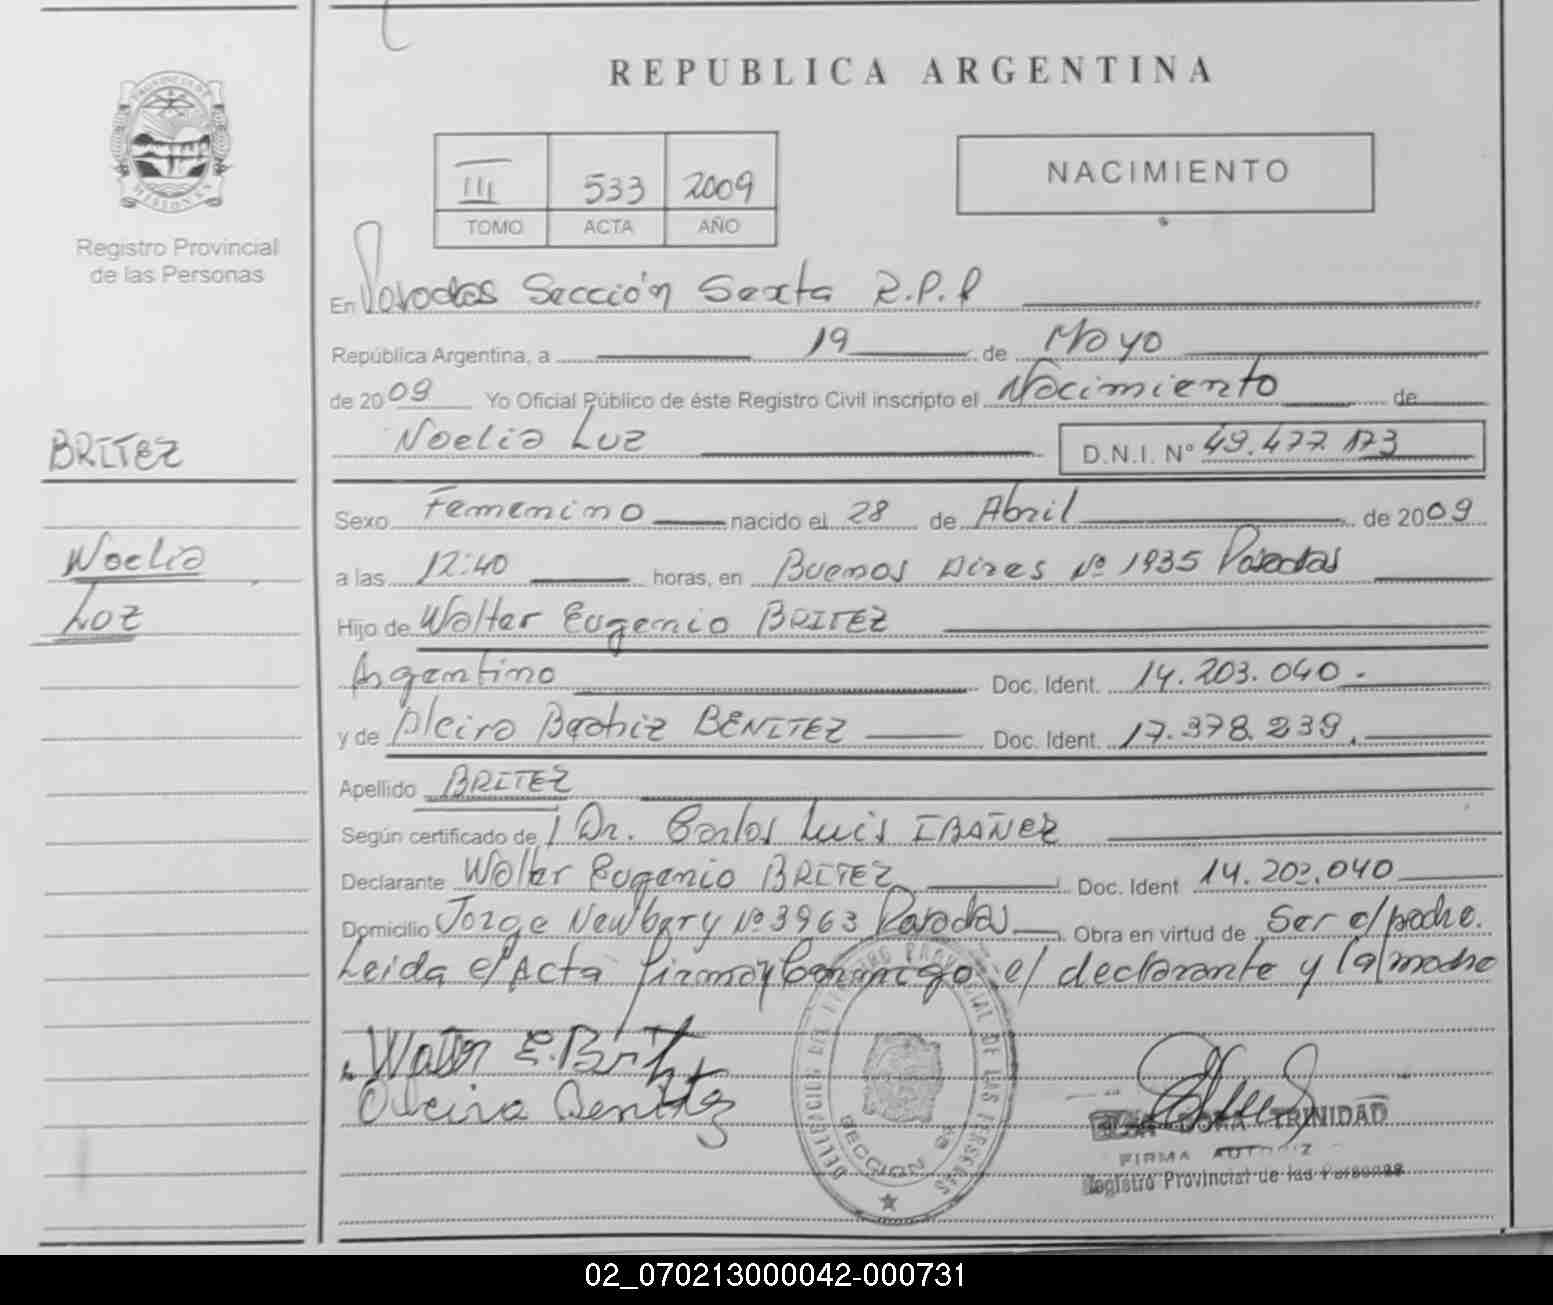 REPUBLICA ARGENTINA
PROVINCIA DE
MISIONES
Registro Provincial
de las Personas
III 533 2009
TOMO ACTA AÑO
NACIMIENTO
En Posadas Sección Sexta R.P.P
República Argentina, a 19 de Mayo
de 2009 Yo Oficial Público de éste Registro Civil inscripto el Nacimiento de
Noelia Luz D.N.I. Nº 49.477.173
BRITEZ
Noelia
Luz
Sexo Femenino nacido el 28 de Abril de 2009
a las 12:40 horas, en Buenos Aires Nº 1935 Posadas
Hijo de Walter Eugenio BRITEZ
Argentino Doc. Ident. 14.203.040.
y de Alcira Beatriz BENITEZ Doc. Ident. 17.378.239.
Apellido BRITEZ
Según certificado de Dr. Carlos Luis IBAÑEZ
Declarante Walter Eugenio BRITEZ Doc. Ident 14.203.040
Domicilio Jorge Newbery Nº 3963 Posadas Obra en virtud de Ser el padre.
Leida el Acta firman Conmigo el declarante y la madre
Walter E. Britez
Benitez
DELEGACION DEL REGISTRO PROVINCIAL DE LAS PERSONAS
SECCION
DORA TRINIDAD
FIRMA AUTORIZ
Registro Provincial de las Personas
02_070213000042-000731